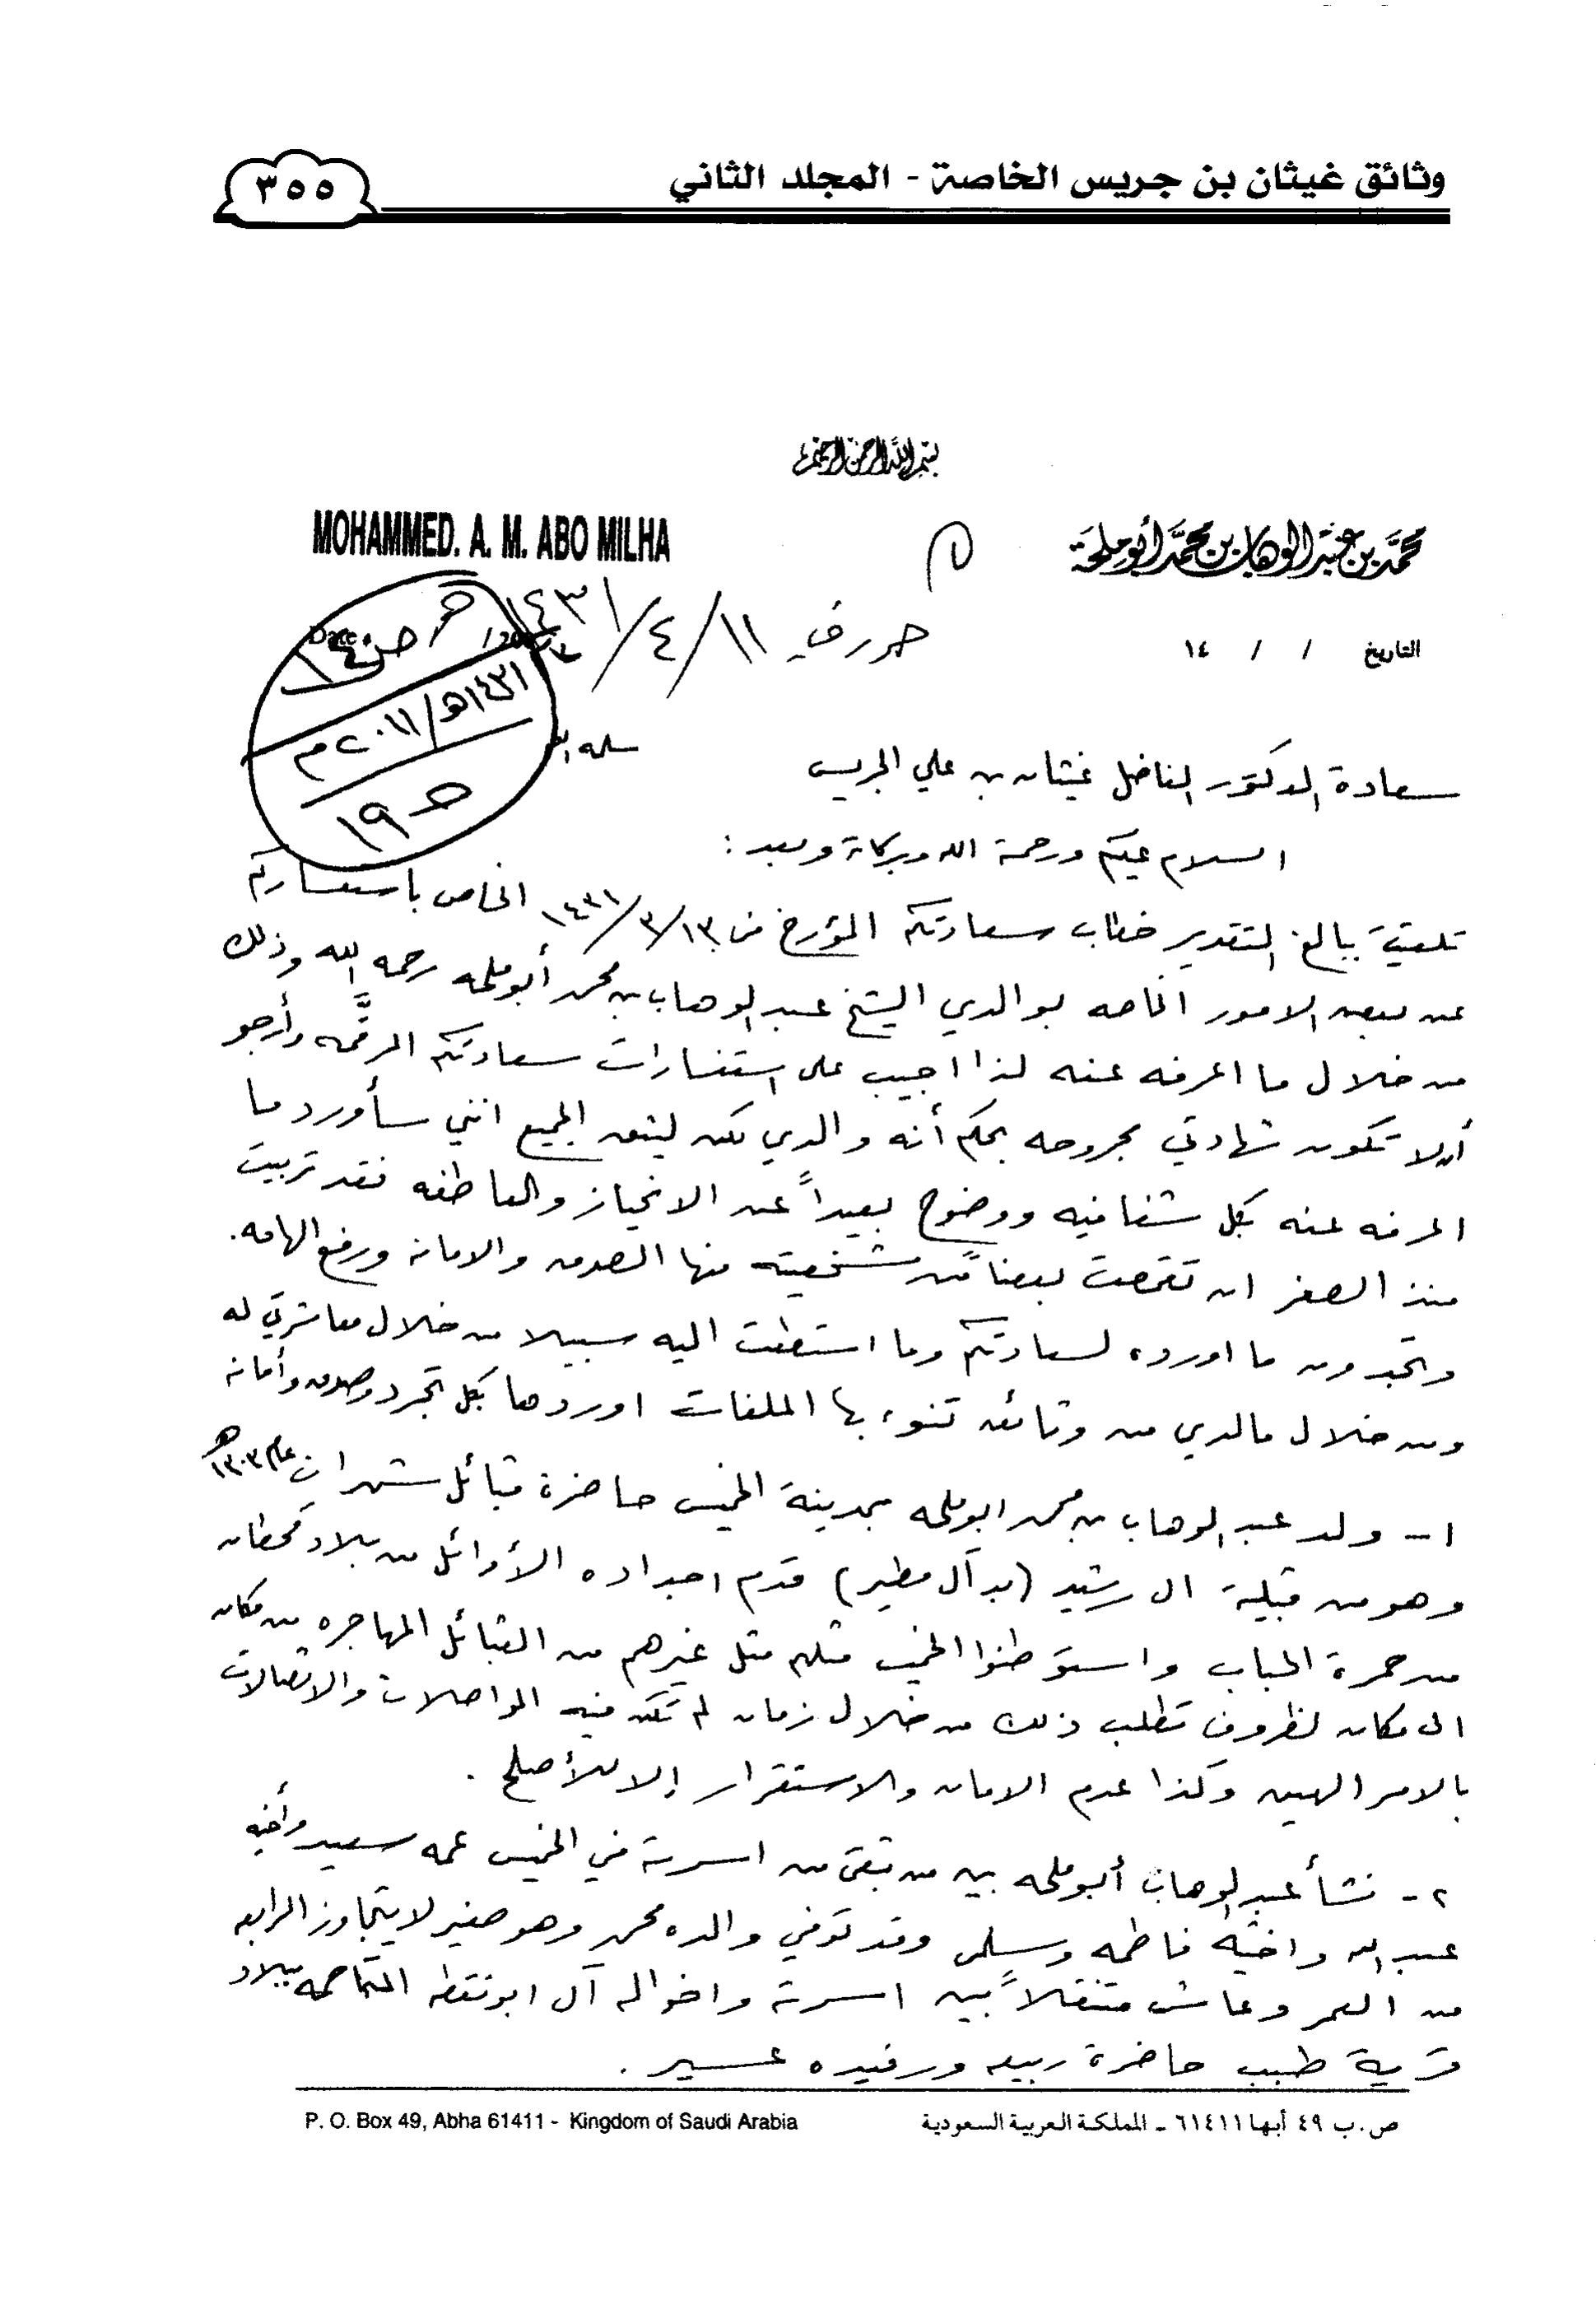 وثائق غيثان بن جريس الخاصة - المجلد الثاني
٣٥٥
بسم الله الرحمن الرحيم
MOHAMMED. A. M. ABO MILHA
محمد بن عبد الوهاب بن محمد أبو ملحة
التاريخ / / ١٤
حرر في ١١/٤/١٤٣١
Date
١٤٣١هـ/٢٠١١م
سعادة الدكتور الفاضل غيثان بن علي الجريس سلمه الله
السلام عليكم ورحمة الله وبركاته وبعد :
تلقيت ببالغ التقدير خطاب سعادتكم المؤرخ في ١٣/٣/١٤٣١ الخاص باستفساركم
عن بعض الامور الخاصه بوالدي الشيخ عبد الوهاب بن محمد أبو ملحه رحمه الله وذلك
من خلال ما اعرفه عنه لذا اجيب على استفسارات سعادتكم المرقمه وأرجو
أن لا تكون شهادتي مجروحه بحكم أنه والدي لكن ليثق الجميع انني سأورد ما
اعرفه عنه بكل شفافيه ووضوح بعيداً عن الانحياز والعاطفه فقد تربيت
منذ الصغر ان تقمصت بعضاً من شخصيته منها الصدق والامانه ورفع الهامه.
وتجدون ما اورده لسعادتكم وما استطعت اليه سبيلا من خلال معاشرتي له
ومن خلال مالدي من وثائق تنوء بها الملفات اوردها بكل تجرد وصدق وأمانه
١- ولد عبد الوهاب بن محمد ابو ملحه بمدينة الخميس حاضرة قبائل شهران عام ١٣٠٣هـ
وهو من قبيلة ال رشيد (من آل مطير) قدم اجداده الأوائل من بلاد قحطان
من حمرة الحباب واستوطنوا الخميس مثلهم مثل غيرهم من القبائل المهاجره من مكان
الى مكان لظروف تطلب ذلك من خلال زمان لم تكن فيه المواصلات والاتصالات
بالامر الهين وكذا عدم الامان والاستقرار إلا للأصلح .
٢- نشأ عبد الوهاب أبو ملحه بين من تبقى من اسرته في الخميس عمه سعيد وأخيه
عبد الله واختيه فاطمه وسلمى وقد توفي والده محمد وهو صغير لا يتجاوز الرابعه
من العمر وعاش متنقلاً بين اسرته واخواله آل ابو نقطه المتحاميه ببلاد
قرية طبب حاضرة ربيعه ورفيده عسير .
P. O. Box 49, Abha 61411 - Kingdom of Saudi Arabia
ص.ب ٤٩ أبها ٦١٤١١ - المملكة العربية السعودية